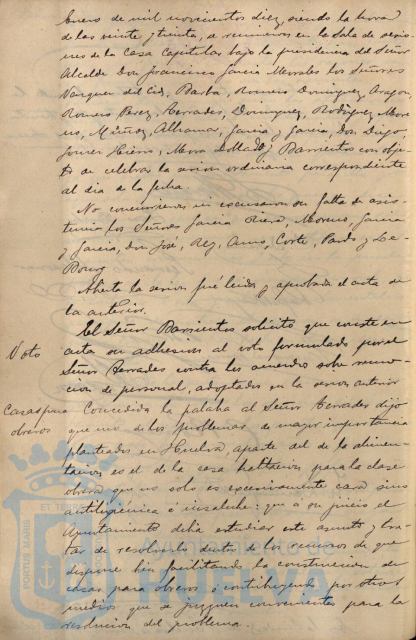 Enero de mil novecientos diez, siendo la hora
de las veinte y treinta, se reunieron en la Sala de sesio-
nes de la Casa Capitular bajo la presidencia del Señor
Alcalde Don Francisco Garcia Morales los Señores
Vazquez del Cid, Barba, Romero Dominguez, Aragon,
Romero Perez, Terrades, Dominguez, Rodriguez More-
no, Muñoz, Alhamar, Garcia y Garcia, Don Diego,
Hierro, Mora y Barrientos con obje-
to de celebrar la sesion ordinaria correspondiente
al dia de la fecha.
No concurrieron ni escusaron su falta de asis-
tencia los Señores Garcia Moreno, Garcia
y Garcia, Don José, Rey, Corte, Pardo y Le-
Bourg
Abierta la sesion fué leida y aprobada el acta de
la anterior.
Voto
El Señor Barrientos solicitó que conste en
acta su adhesion al voto formulado por el
Señor Terrades contra los acuerdos sobre remo-
cion de personal, adoptados en la sesion anterior
Casas para
obreros
Concedida la palabra al Señor Terrades dijo
que uno de los problemas de mayor importancia
planteados en Huelva, aparte del de la alimen-
tacion es el de la casa habitacion para la clase
obrera que no solo es excesivamente cara sino
antihigienica é insalubre: que a su juicio el
Ayuntamiento debia estudiar este asunto y tra-
tar de resolverlo dentro de los recursos de que
dispone bien facilitando la construccion de
casas para obreros ó contribuyendo por otros
medios que se juzguen convenientes para la
resolucion del problema.
PORTUS MARIS
ET TE
Ayuntamiento de
HUELVA